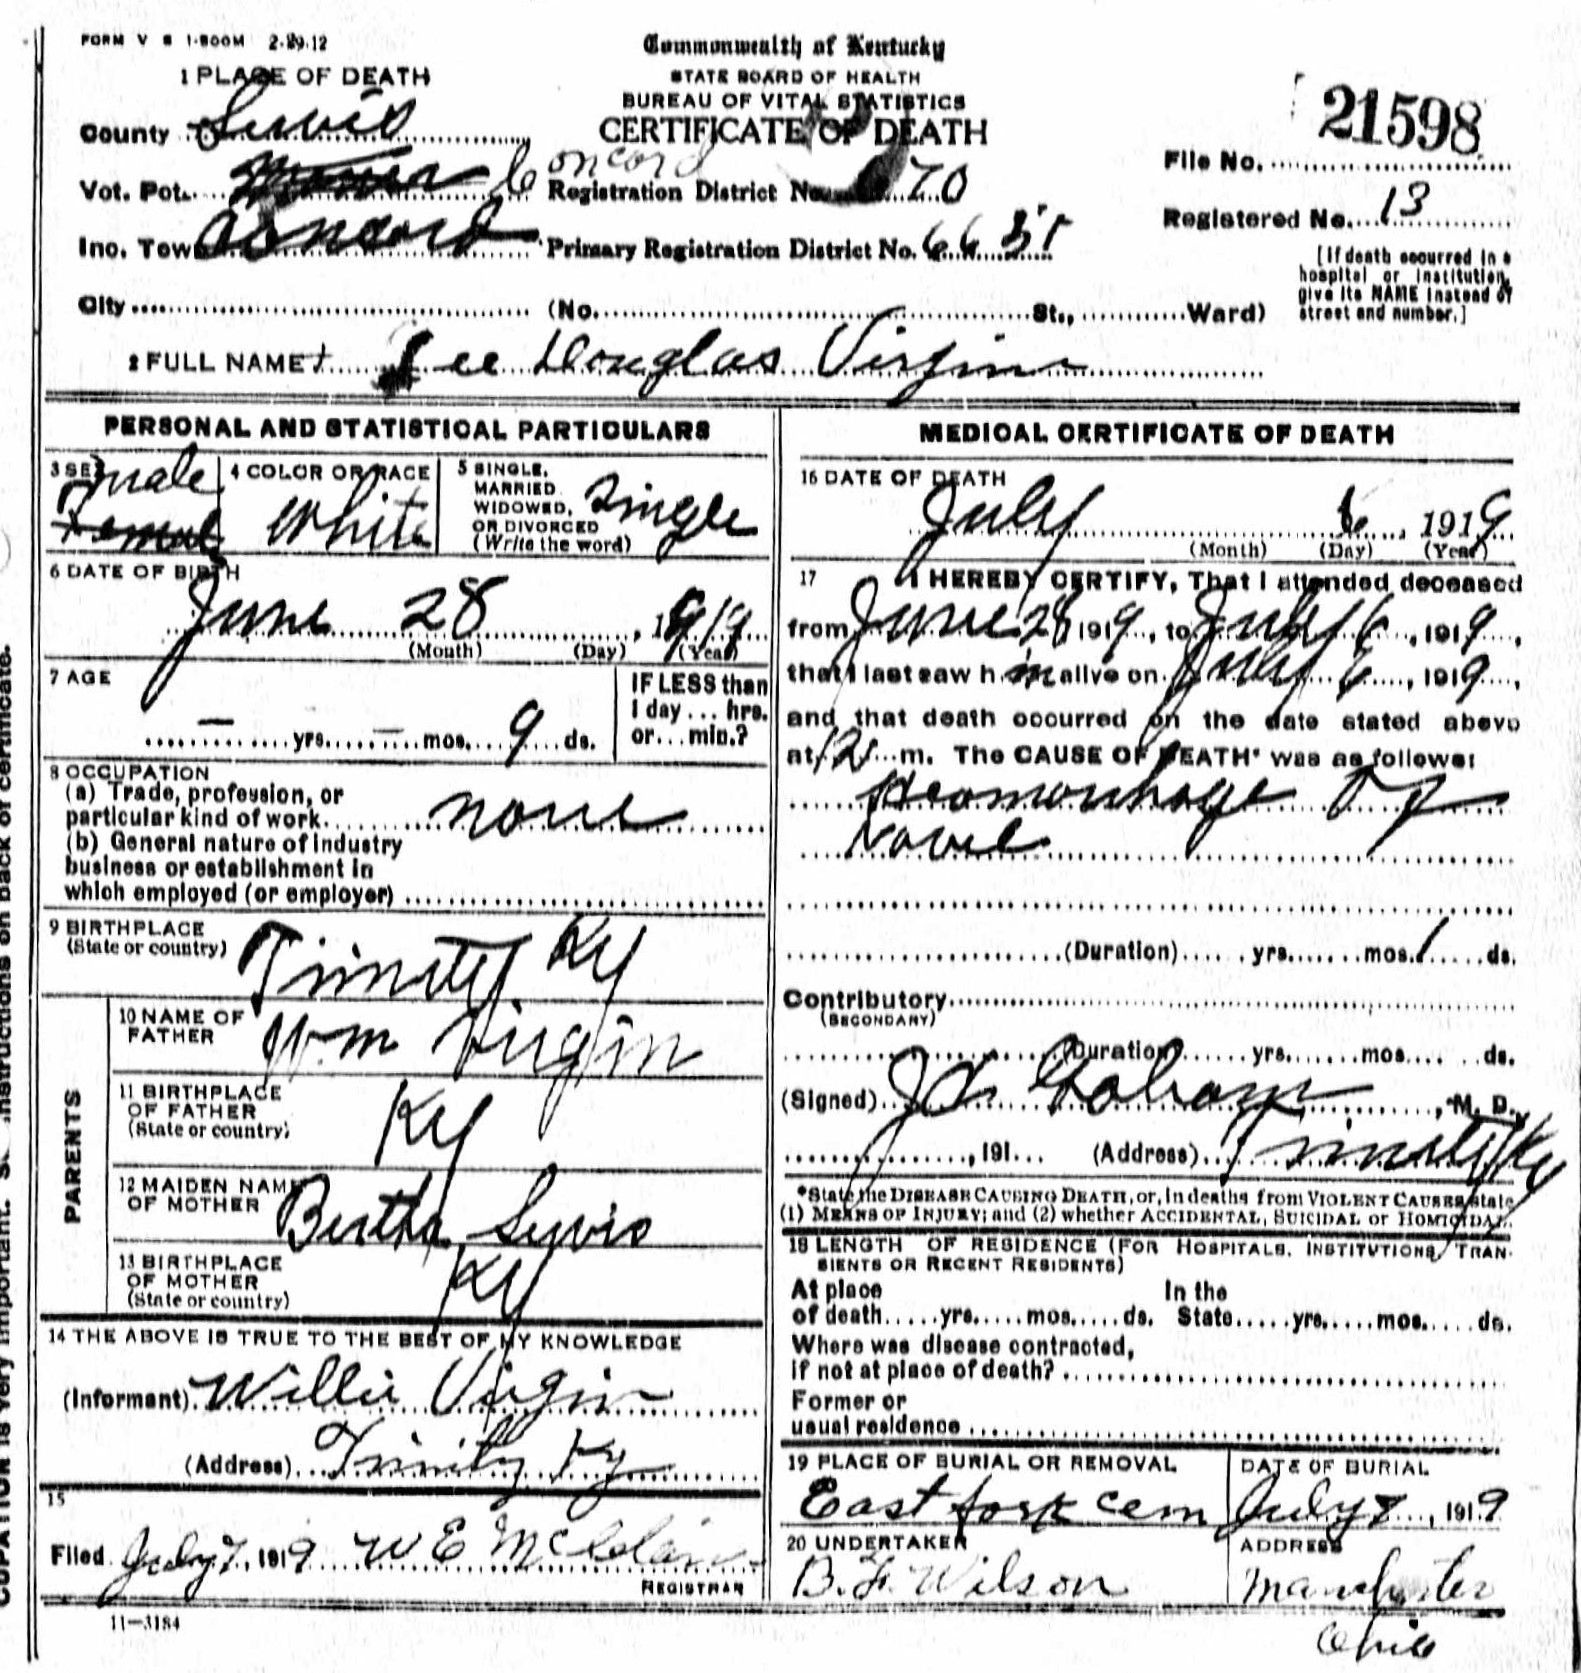 FORM V S 1-500M 2-29-12
Commonwealth of Kentucky
STATE BOARD OF HEALTH
BUREAU OF VITAL STATISTICS
CERTIFICATE OF DEATH
1 PLACE OF DEATH
County Lewis
Vot. Pct. Concord
Inc. Town Concord
Registration District No. 70
Primary Registration District No. 66
21598
File No.
Registered No. 13
[If death occurred in a
hospital or institution,
give its NAME instead of
street and number.]
City (No. St., Ward)
2 FULL NAME Lee Douglas Virgin
PERSONAL AND STATISTICAL PARTICULARS
3 SEX male
Femal
4 COLOR OR RACE
White
5 SINGLE,
MARRIED
WIDOWED,
OR DIVORCED
(Write the word)
Single
6 DATE OF BIRTH
June 28, 1919
(Month) (Day) (Year)
7 AGE
— yrs. — mos. 9 ds.
IF LESS than
1 day ... hrs.
or ... min.?
8 OCCUPATION
(a) Trade, profession, or
particular kind of work none
(b) General nature of industry
business or establishment in
which employed (or employer)
9 BIRTHPLACE
(State or country)
Trinity Ky
PARENTS
10 NAME OF
FATHER
Wm Virgin
11 BIRTHPLACE
OF FATHER
(State or country)
Ky
12 MAIDEN NAME
OF MOTHER
Bertha Lewis
13 BIRTHPLACE
OF MOTHER
(State or country)
Ky
14 THE ABOVE IS TRUE TO THE BEST OF MY KNOWLEDGE
(Informant) Willie Virgin
(Address) Trinity Ky
15
Filed July 7, 1919 W E McClain
REGISTRAR
11—3184
MEDICAL CERTIFICATE OF DEATH
16 DATE OF DEATH
July 6, 1919
(Month) (Day) (Year)
17 I HEREBY CERTIFY, That I attended deceased
from June 28 1919, to July 6, 1919,
that I last saw him alive on July 6, 1919,
and that death occurred on the date stated above
at 12 m. The CAUSE OF DEATH* was as follows:
Heamorrhage of
navel
(Duration) yrs. mos. 1 ds.
Contributory
(SECONDARY)
(Duration) yrs. mos. ds.
(Signed) M. D.
, 191 (Address) Trinity Ky
*State the DISEASE CAUSING DEATH, or, in deaths from VIOLENT CAUSES, state
(1) MEANS OF INJURY; and (2) whether ACCIDENTAL, SUICIDAL or HOMICIDAL.
18 LENGTH OF RESIDENCE (FOR HOSPITALS, INSTITUTIONS, TRAN-
SIENTS OR RECENT RESIDENTS)
At place
of death yrs. mos. ds.
In the
State yrs. mos. ds.
Where was disease contracted,
if not at place of death?
Former or
usual residence
19 PLACE OF BURIAL OR REMOVAL
East fork cem
DATE OF BURIAL
July 7, 1919
20 UNDERTAKER
B. F. Wilson
ADDRESS
Manchester
Ohio